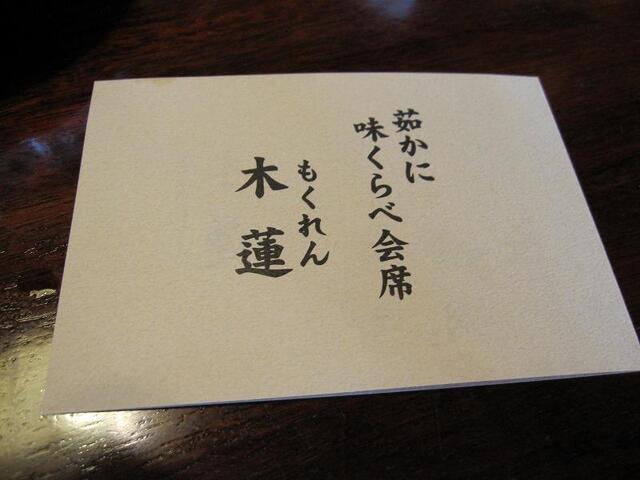 茹かに
味くらべ会席
もくれん
木蓮